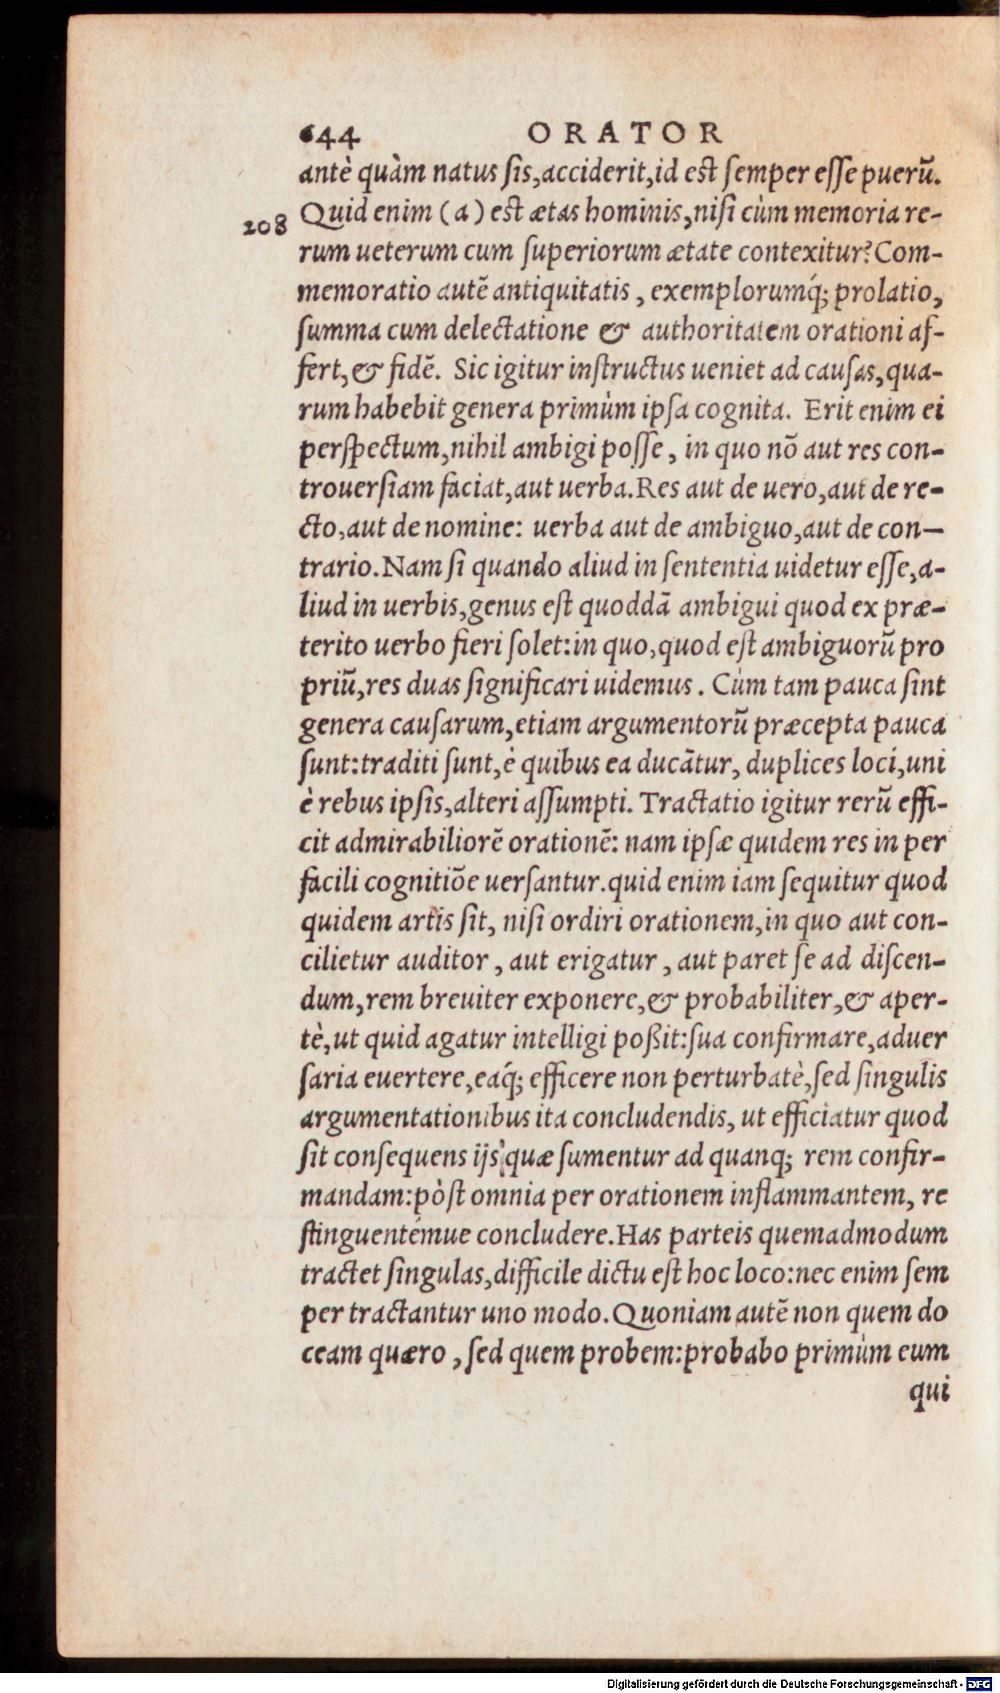 644 ORATOR
antè quàm natus sis,acciderit,id est semper esse puerū.
208 Quid enim (a) est ætas hominis,nisi cùm memoria re-
rum ueterum cum superiorum ætate contexitur? Com-
memoratio autē antiquitatis, exemplorumq́; prolatio,
summa cum delectatione & authoritatem orationi af-
fert,& fidē. Sic igitur instructus ueniet ad causas,qua-
rum habebit genera primùm ipsa cognita. Erit enim ei
perspectum,nihil ambigi posse, in quo nō aut res con-
trouersiam faciat,aut uerba.Res aut de uero,aut de re-
cto,aut de nomine: uerba aut de ambiguo,aut de con-
trario.Nam si quando aliud in sententia uidetur esse,a-
liud in uerbis,genus est quoddā ambigui quod ex præ-
terito uerbo fieri solet:in quo,quod est ambiguorū pro
priū,res duas significari uidemus. Cùm tam pauca sint
genera causarum,etiam argumentorū præcepta pauca
sunt:traditi sunt,è quibus ea ducātur, duplices loci,uni
è rebus ipsis,alteri assumpti. Tractatio igitur rerū effi-
cit admirabiliorē orationē: nam ipsæ quidem res in per
facili cognitiōe uersantur.quid enim iam sequitur quod
quidem artis sit, nisi ordiri orationem,in quo aut con-
cilietur auditor, aut erigatur, aut paret se ad discen-
dum,rem breuiter exponere,& probabiliter,& aper-
tè,ut quid agatur intelligi poßit:sua confirmare,aduer
saria euertere,eaq́; efficere non perturbatè,sed singulis
argumentationibus ita concludendis, ut efficiatur quod
sit consequens ijs quæ sumentur ad quanq; rem confir-
mandam:pòst omnia per orationem inflammantem, re
stinguentémue concludere.Has parteis quemadmodum
tractet singulas,difficile dictu est hoc loco:nec enim sem
per tractantur uno modo.Quoniam autē non quem do
ceam quæro, sed quem probem:probabo primùm eum
qui
Digitalisierung gefördert durch die Deutsche Forschungsgemeinschaft - DFG